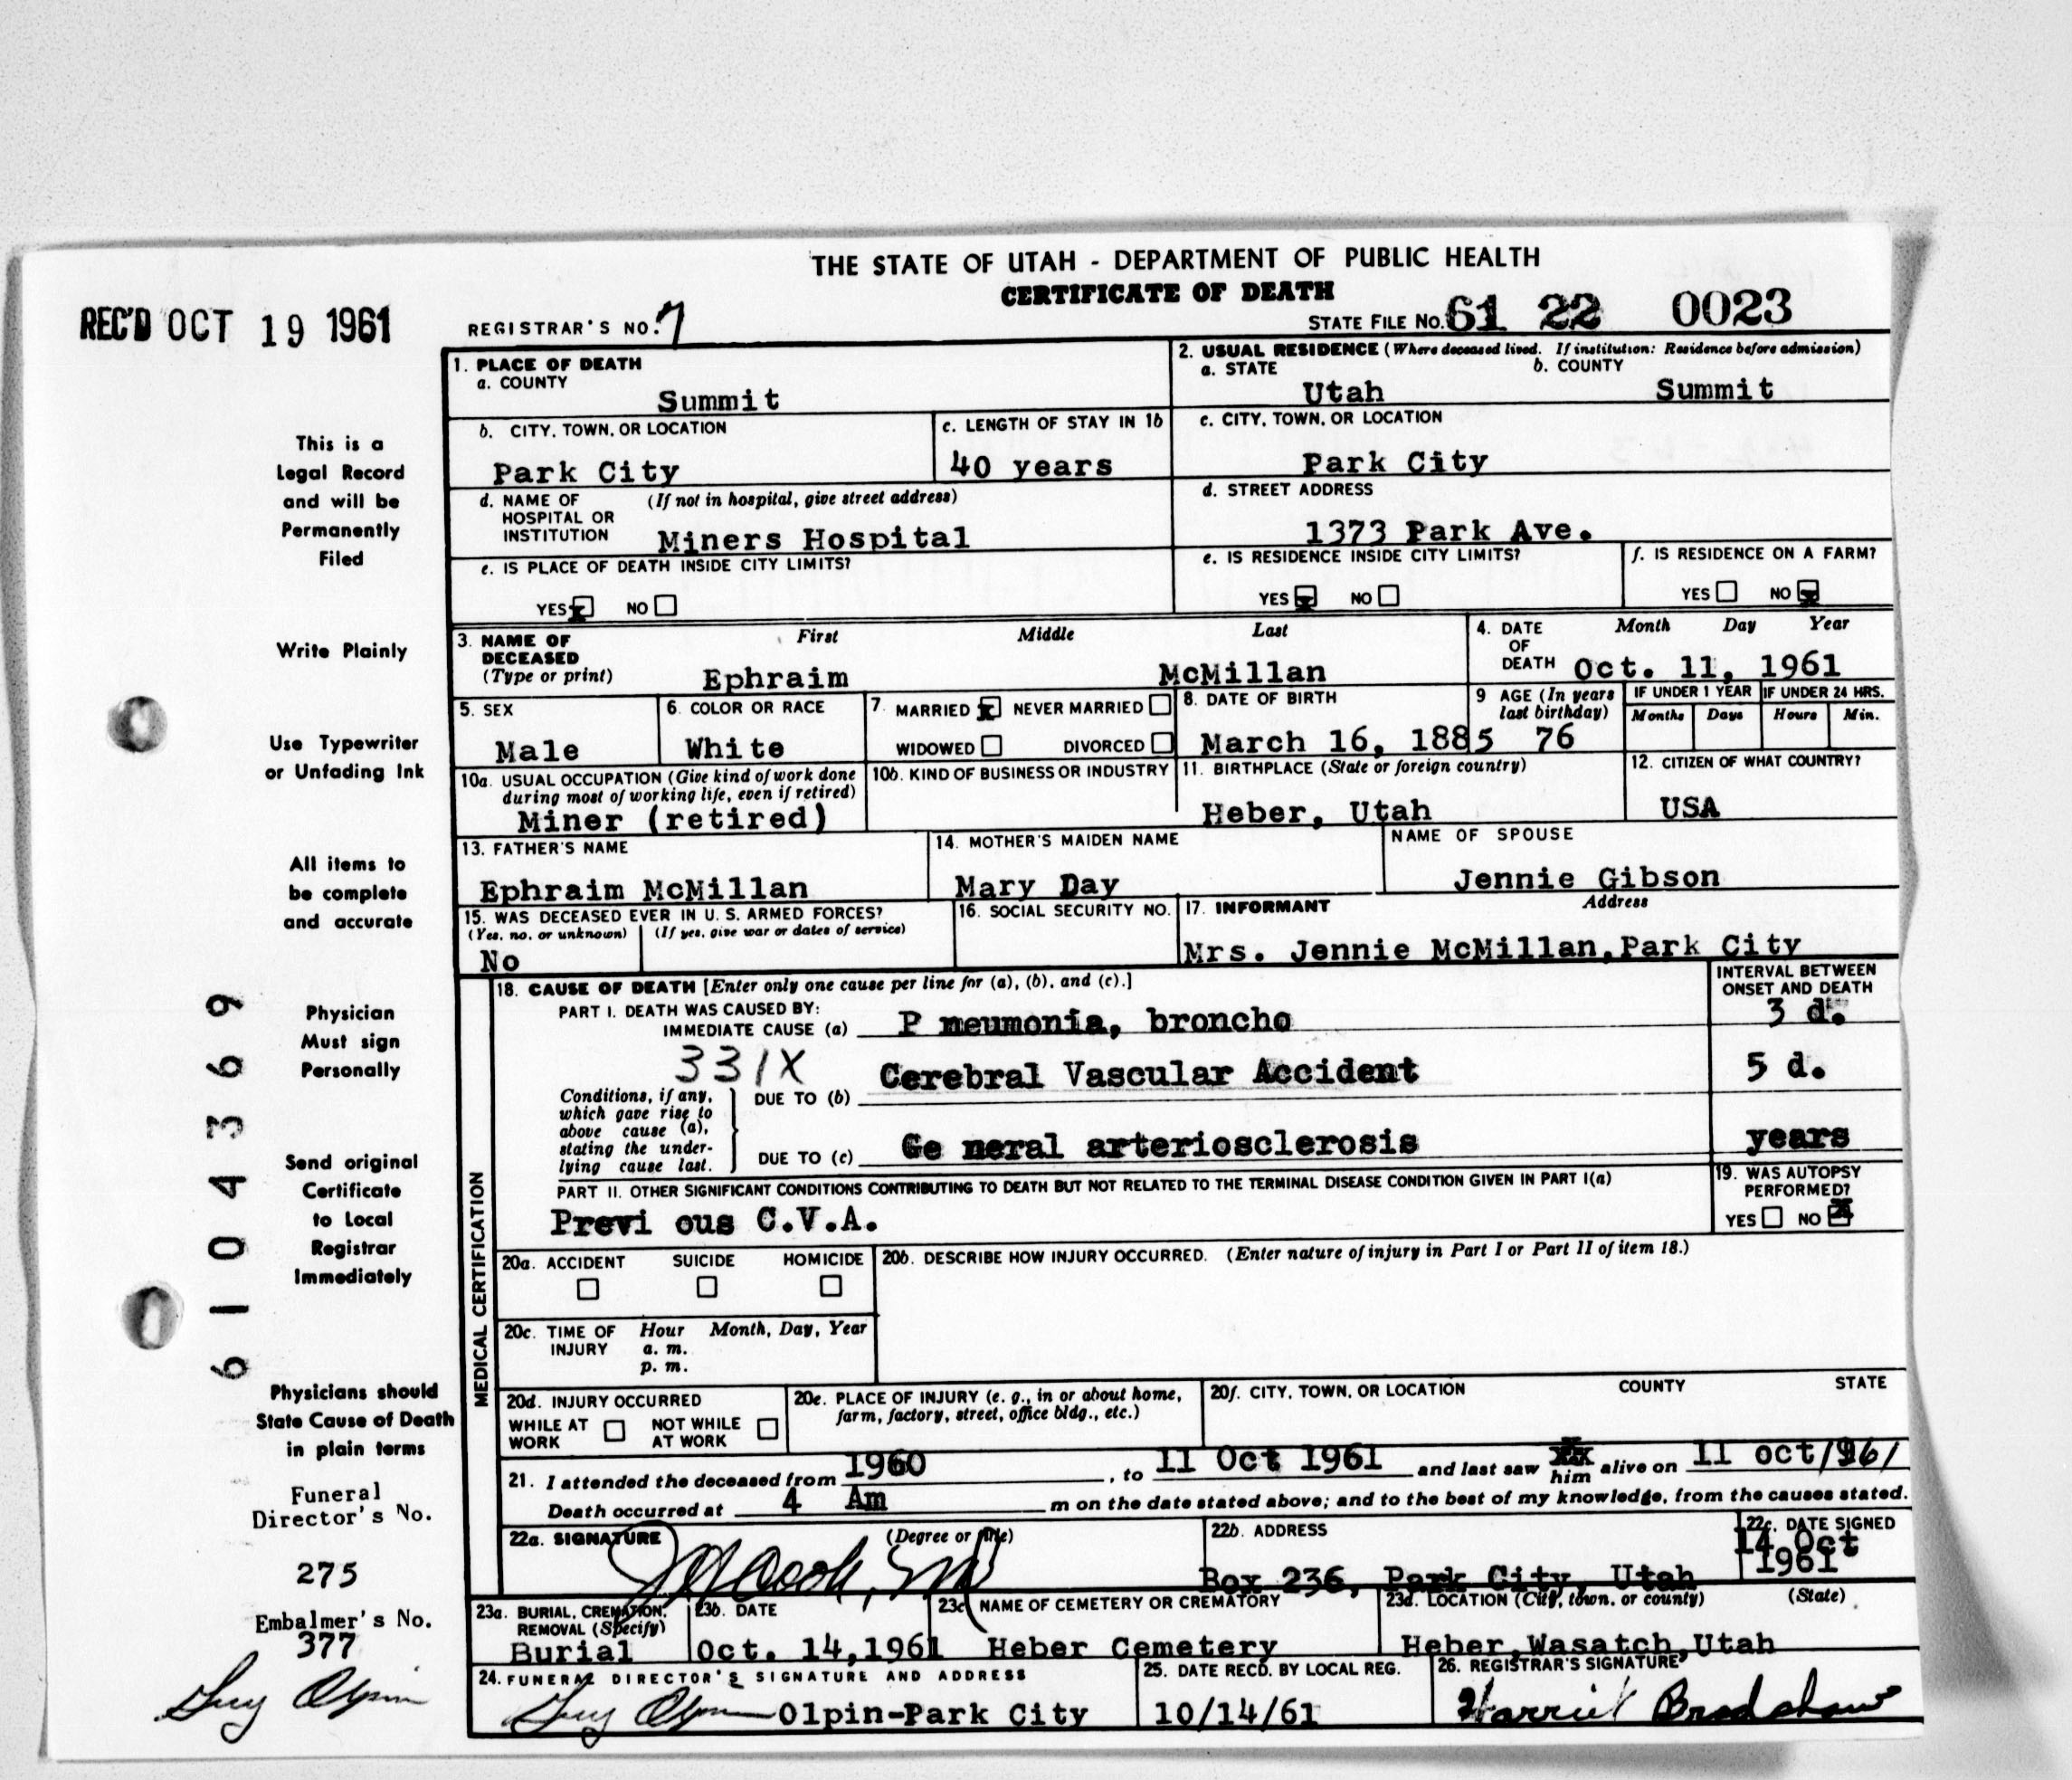 THE STATE OF UTAH - DEPARTMENT OF PUBLIC HEALTH
CERTIFICATE OF DEATH
REC'D OCT 19 1961
REGISTRAR'S NO. 7
STATE FILE NO. 61 22 0023
1. PLACE OF DEATH
a. COUNTY
Summit
2. USUAL RESIDENCE (Where deceased lived. If institution: Residence before admission)
a. STATE b. COUNTY
Utah Summit
b. CITY, TOWN, OR LOCATION
Park City
c. LENGTH OF STAY IN 1b
40 years
c. CITY, TOWN, OR LOCATION
Park City
d. NAME OF (If not in hospital, give street address)
HOSPITAL OR
INSTITUTION Miners Hospital
d. STREET ADDRESS
1373 Park Ave.
e. IS PLACE OF DEATH INSIDE CITY LIMITS?
YES x NO
e. IS RESIDENCE INSIDE CITY LIMITS?
YES x NO
f. IS RESIDENCE ON A FARM?
YES NO x
3. NAME OF First Middle Last
DECEASED
(Type or print) Ephraim McMillan
4. DATE Month Day Year
OF
DEATH Oct. 11, 1961
5. SEX
Male
6. COLOR OR RACE
White
7. MARRIED x NEVER MARRIED
WIDOWED DIVORCED
8. DATE OF BIRTH
March 16, 1885
9 AGE (In years
last birthday)
76
IF UNDER 1 YEAR IF UNDER 24 HRS.
Months Days Hours Min.
10a. USUAL OCCUPATION (Give kind of work done
during most of working life, even if retired)
Miner (retired)
10b. KIND OF BUSINESS OR INDUSTRY
11. BIRTHPLACE (State or foreign country)
Heber, Utah
12. CITIZEN OF WHAT COUNTRY?
USA
13. FATHER'S NAME
Ephraim McMillan
14. MOTHER'S MAIDEN NAME
Mary Day
NAME OF SPOUSE
Jennie Gibson
15. WAS DECEASED EVER IN U. S. ARMED FORCES?
(Yes, no, or unknown) (If yes, give war or dates of service)
No
16. SOCIAL SECURITY NO.
17. INFORMANT Address
Mrs. Jennie McMillan,Park City
MEDICAL CERTIFICATION
18. CAUSE OF DEATH [Enter only one cause per line for (a), (b), and (c).]
INTERVAL BETWEEN
ONSET AND DEATH
PART I. DEATH WAS CAUSED BY:
IMMEDIATE CAUSE (a) P neumonia, broncho 3 d.
331X
Cerebral Vascular Accident 5 d.
Conditions, if any,
which gave rise to
above cause (a),
stating the under-
lying cause last.
DUE TO (b)
DUE TO (c) Ge neral arteriosclerosis years
PART II. OTHER SIGNIFICANT CONDITIONS CONTRIBUTING TO DEATH BUT NOT RELATED TO THE TERMINAL DISEASE CONDITION GIVEN IN PART I(a)
Previ ous C.V.A.
19. WAS AUTOPSY
PERFORMED?
YES NO x
20a. ACCIDENT SUICIDE HOMICIDE
20b. DESCRIBE HOW INJURY OCCURRED. (Enter nature of injury in Part I or Part II of item 18.)
20c. TIME OF Hour Month, Day, Year
INJURY a. m.
p. m.
20d. INJURY OCCURRED
WHILE AT NOT WHILE
WORK AT WORK
20e. PLACE OF INJURY (e. g., in or about home,
farm, factory, street, office bldg., etc.)
20f. CITY, TOWN, OR LOCATION COUNTY STATE
21. I attended the deceased from 1960, to 11 Oct 1961 and last saw him alive on 11 oct/961
Death occurred at 4 Am m on the date stated above; and to the best of my knowledge, from the causes stated.
22a. SIGNATURE (Degree or title)
22b. ADDRESS
Box 236, Park City, Utah
22c. DATE SIGNED
14 Oct
1961
23a. BURIAL, CREMATION,
REMOVAL (Specify)
Burial
23b. DATE
Oct. 14,1961
23c NAME OF CEMETERY OR CREMATORY
Heber Cemetery
23d. LOCATION (City, town, or county) (State)
Heber,Wasatch,Utah
24. FUNERAL DIRECTOR'S SIGNATURE AND ADDRESS
Guy Olpin Olpin-Park City
25. DATE RECD. BY LOCAL REG.
10/14/61
26. REGISTRAR'S SIGNATURE
Harriet Bradshaw
This is a
Legal Record
and will be
Permanently
Filed
Write Plainly
Use Typewriter
or Unfading Ink
All items to
be complete
and accurate
Physician
Must sign
Personally
Send original
Certificate
to Local
Registrar
Immediately
Physicians should
State Cause of Death
in plain terms
Funeral
Director's No.
275
Embalmer's No.
377
Guy Olpin
61043 69